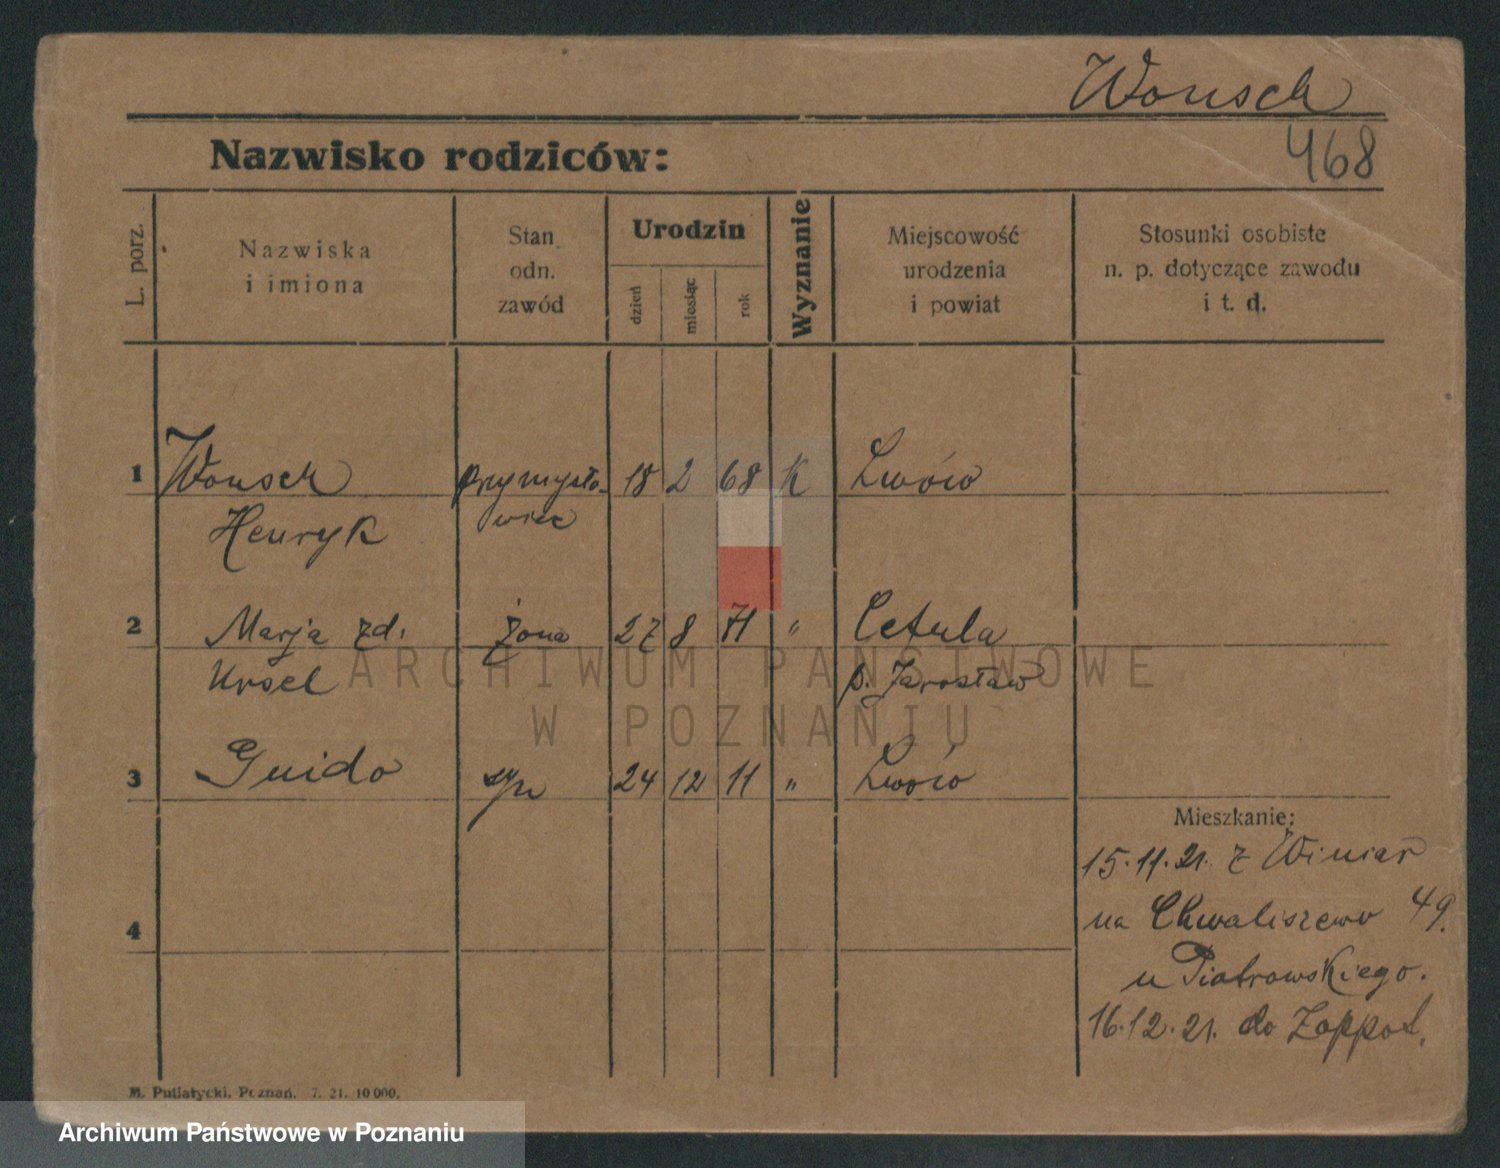 Wonsch
Nazwisko rodziców:
468
L. porz.
Nazwiska
i imiona
Stan
odn.
zawód
Urodzin
dzień
miesiąc
rok
Wyznanie
Miejscowość
urodzenia
i powiat
Stosunki osobiste
n. p. dotyczące zawodu
i t. d.
1 Wonsch przemysło- 18 2 68 K Lwów
Henryk wiec
2 Marja zd. żona 27 8 71 " Cetula
Ursel p. Jarosław
3 Guido syn 24 12 11 " Lwów
4
Mieszkanie:
15.11.21. z Winiar
na Chwaliszewo 49.
u Piotrowskiego.
16.12.21. do Zoppot.
M. Putiatycki. Poznań. 7. 21. 10 000.
ARCHIWUM PAŃSTWOWE
W POZNANIU
Archiwum Państwowe w Poznaniu